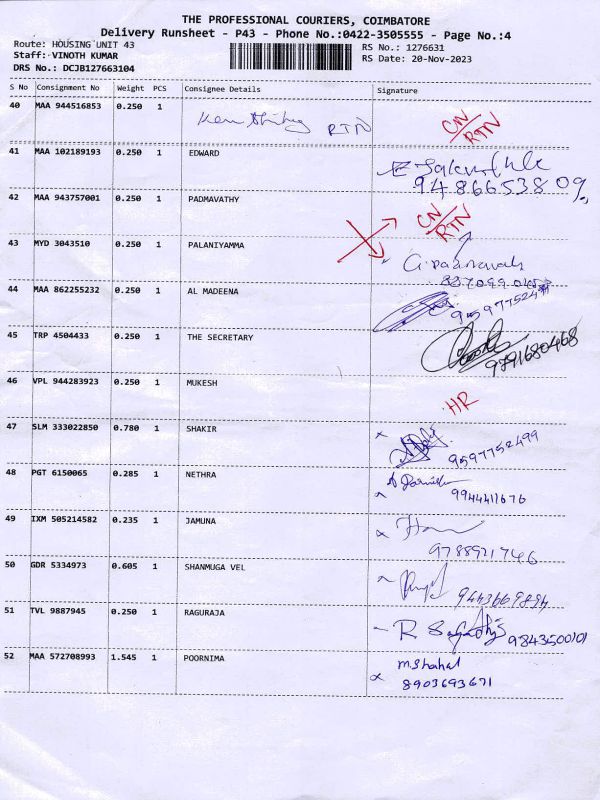 THE PROFESSIONAL COURIERS, COIMBATORE
Delivery Runsheet - P43 - Phone No.:0422-3505555 - Page No.:4
Route: HOUSING UNIT 43
RS No.: 1276631
Staff: VINOTH KUMAR
RS Date: 20-Nov-2023
DRS No.: DCJB127663104
S No Consignment No Weight PCS Consignee Details Signature
40 MAA 944516853 0.250 1 RTN CN/RTN
41 MAA 102189193 0.250 1 EDWARD
9486653809
42 MAA 943757001 0.250 1 PADMAVATHY CN/RTN
43 MYD 3043510 0.250 1 PALANIYAMMA
44 MAA 862255232 0.250 1 AL MADEENA
9597752499
45 TRP 4504433 0.250 1 THE SECRETARY
9791680468
46 VPL 944283923 0.250 1 MUKESH HR
47 SLM 333022850 0.780 1 SHAKIR
9597752499
48 PGT 6150065 0.285 1 NETHRA
9944411676
49 IXM 505214582 0.235 1 JAMUNA
9788921746
50 GDR 5334973 0.605 1 SHANMUGA VEL
9443669894
51 TVL 9887945 0.250 1 RAGURAJA
9843500101
52 MAA 572708993 1.545 1 POORNIMA M.Shahal
8903693671